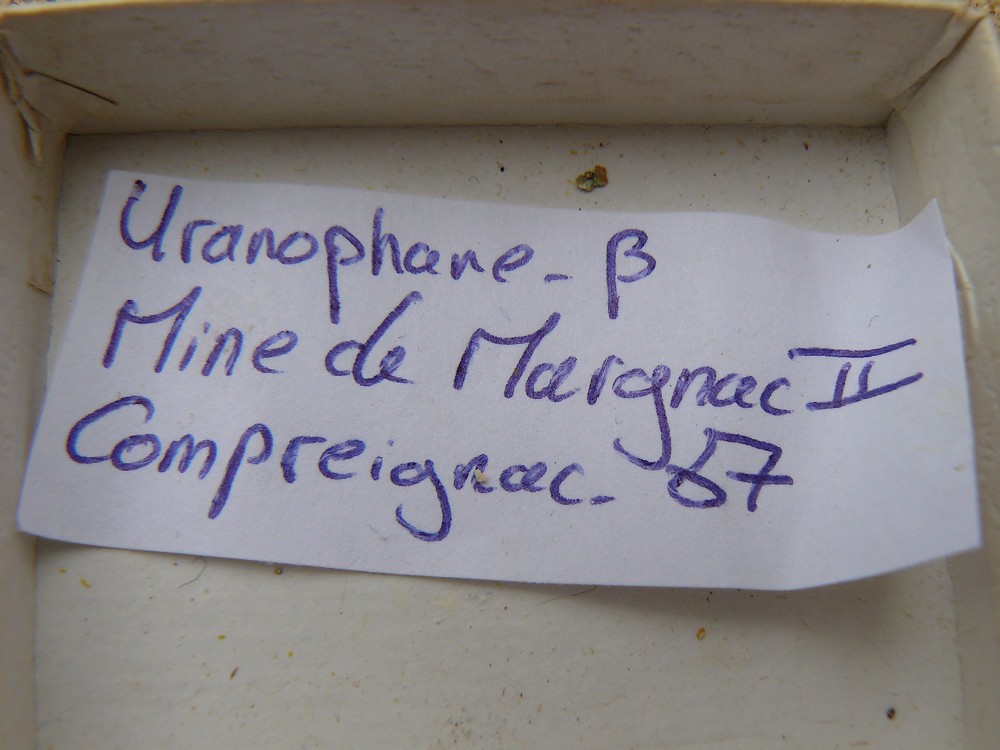 Uranophane - β
Mine de Margnac II
Compreignac - 87